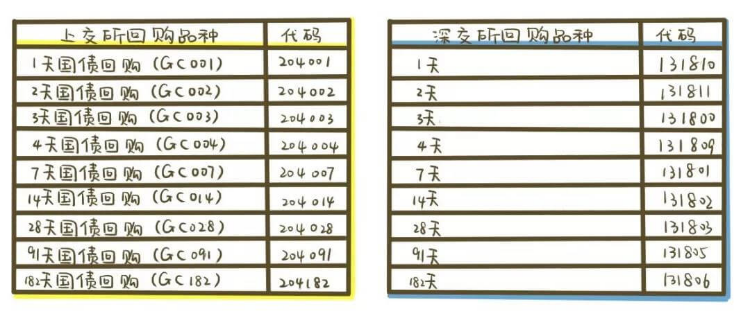 上交所回购品种 代码
1天国债回购 (GC001) 204001
2天国债回购 (GC002) 204002
3天国债回购 (GC003) 204003
4天国债回购 (GC004) 204004
7天国债回购 (GC007) 204007
14天国债回购 (GC014) 204014
28天国债回购 (GC028) 204028
91天国债回购 (GC091) 204091
182天国债回购 (GC182) 204182
深交所回购品种 代码
1天 131810
2天 131811
3天 131800
4天 131809
7天 131801
14天 131802
28天 131803
91天 131805
182天 131806